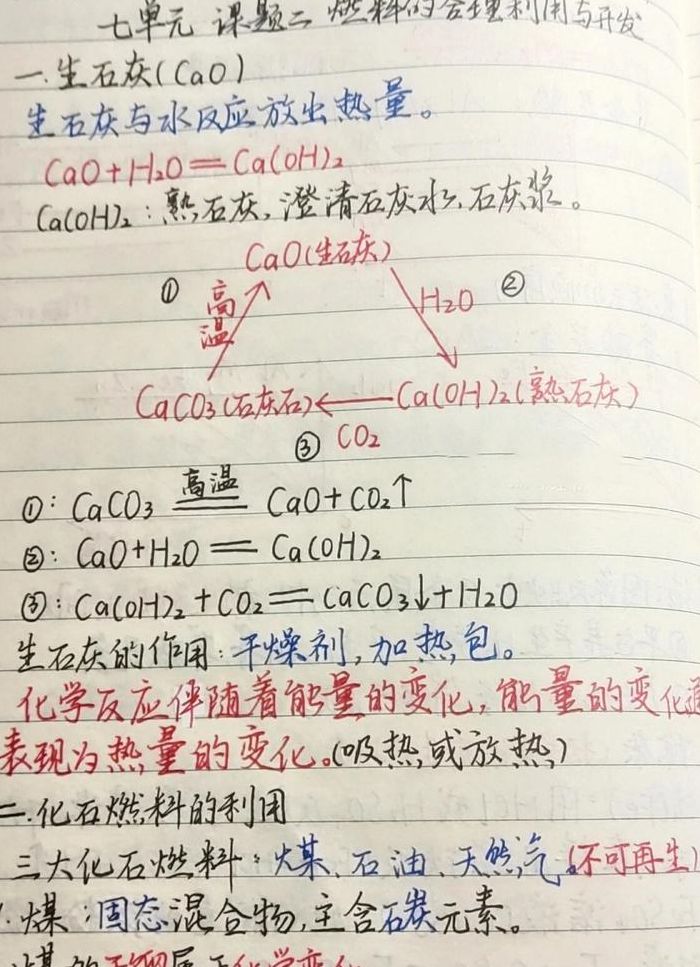 七单元 课题二 燃料的合理利用与开发
一.生石灰(CaO)
生石灰与水反应放出热量。
CaO+H₂O═Ca(OH)₂
Ca(OH)₂:熟石灰,澄清石灰水、石灰浆。
CaO(生石灰)
① 高温 H₂O ②
CaCO₃(石灰石)←Ca(OH)₂(熟石灰)
③ CO₂
①:CaCO₃ 高温═ CaO+CO₂↑
②:CaO+H₂O═Ca(OH)₂
③:Ca(OH)₂+CO₂═CaCO₃↓+H₂O
生石灰的作用:干燥剂,加热包。
化学反应伴随着能量的变化,能量的变化通
表现为热量的变化。(吸热或放热)
二.化石燃料的利用
三大化石燃料:煤、石油、天然气。(不可再生)
煤:固态混合物,主含碳元素。